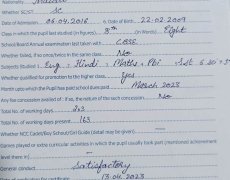 Nationality Indian
Whether SC/ST SC
Date of Admission 06.04.2016 Date of Birth 22-02-2009
Class in which the pupil last studied (in figures) 8th (in Words) Eight
School/Board Annual examination last taken with CBSE
Whether failed, if so once/twice in the same class No
Subjects Studied : Eng Hindi Maths Pbi Sst
Whether qualified for promotion to the higher class Yes
Month upto which the Pupil has paid School dues March 2023
Any fee concession availed of : if so, the nature of such concession No
Total No. of working days
Total No. of working days present 163
Whether NCC Cadet/Boy Scout/Girl Guide (detail may be given)
Games played or extra curricular activities in which the pupil usually took part (mentioned achievement
level there in)
General conduct Satisfactory
13.04.2023